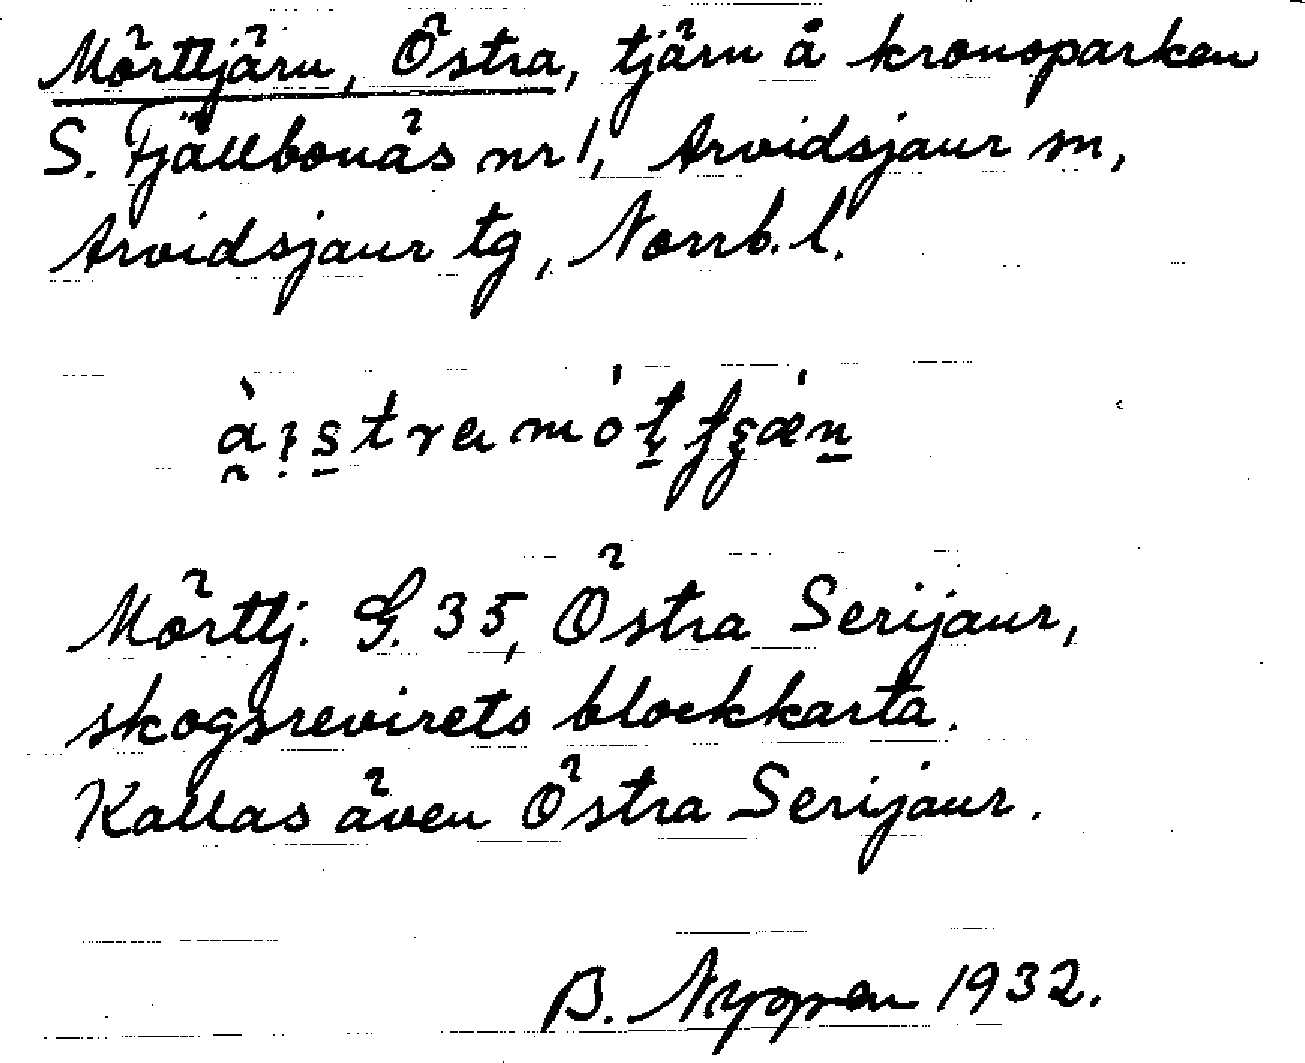 Mörttjärn, Östra, tjärn å kronoparken
S. Fjällbonäs nr 1, Arvidsjaur sn,
Arvidsjaur tg, Norrb. l.
Mörttj. G. 35, Östra Serijaur,
skogsrevirets blockkarta.
Kallas även Östra Serijaur.
B. Nyppen 1932.